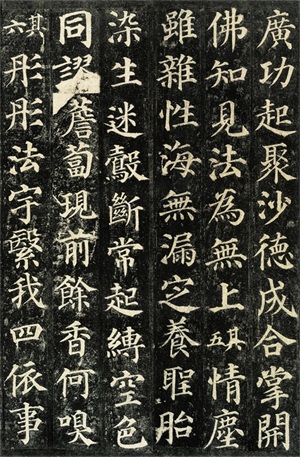 廣功起聚沙德成合掌開
佛知見法為無上其五情塵
雖雜性海無漏定養聖胎
染生迷鷇斷常起縛空色
同謬薝蔔現前餘香何嗅
其六彤彤法宇繄我四依事